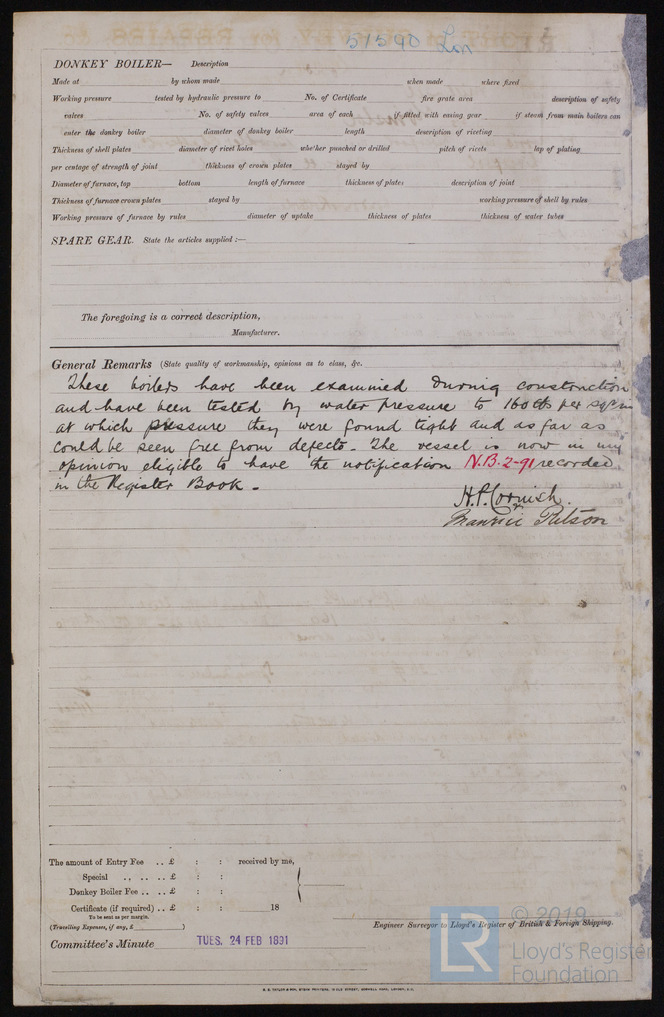 51590 Lon
DONKEY BOILER— Description
Made at by whom made when made where fixed
Working pressure tested by hydraulic pressure to No. of Certificate fire grate area description of safety
valves No. of safety valves area of each if fitted with easing gear if steam from main boilers can
enter the donkey boiler diameter of donkey boiler length description of riveting
Thickness of shell plates diameter of rivet holes whether punched or drilled pitch of rivets lap of plating
per centage of strength of joint thickness of crown plates stayed by
Diameter of furnace, top bottom length of furnace thickness of plates description of joint
Thickness of furnace crown plates stayed by working pressure of shell by rules
Working pressure of furnace by rules diameter of uptake thickness of plates thickness of water tubes
SPARE GEAR. State the articles supplied :—
The foregoing is a correct description,
Manufacturer.
General Remarks (State quality of workmanship, opinions as to class, &c.
These boilers have been examined during construction
and have been tested by water pressure to 160 lbs per sq in
at which pressure they were found tight and as far as
could be seen free from defects. The vessel is now in my
opinion eligible to have the notification N.B. 2-91 recorded
in the Register Book.
H.P. Cornish.
The amount of Entry Fee .. £ : : received by me,
Special .. .. .. £ : :
Donkey Boiler Fee .. .. £ : :
Certificate (if required) .. £ : : 18
To be sent as per margin.
(Travelling Expenses, if any, £ )
Engineer Surveyor to Lloyd's Register of British & Foreign Shipping.
Committee's Minute TUES. 24 FEB 1891
© 2019
LR Lloyd's Register
Foundation